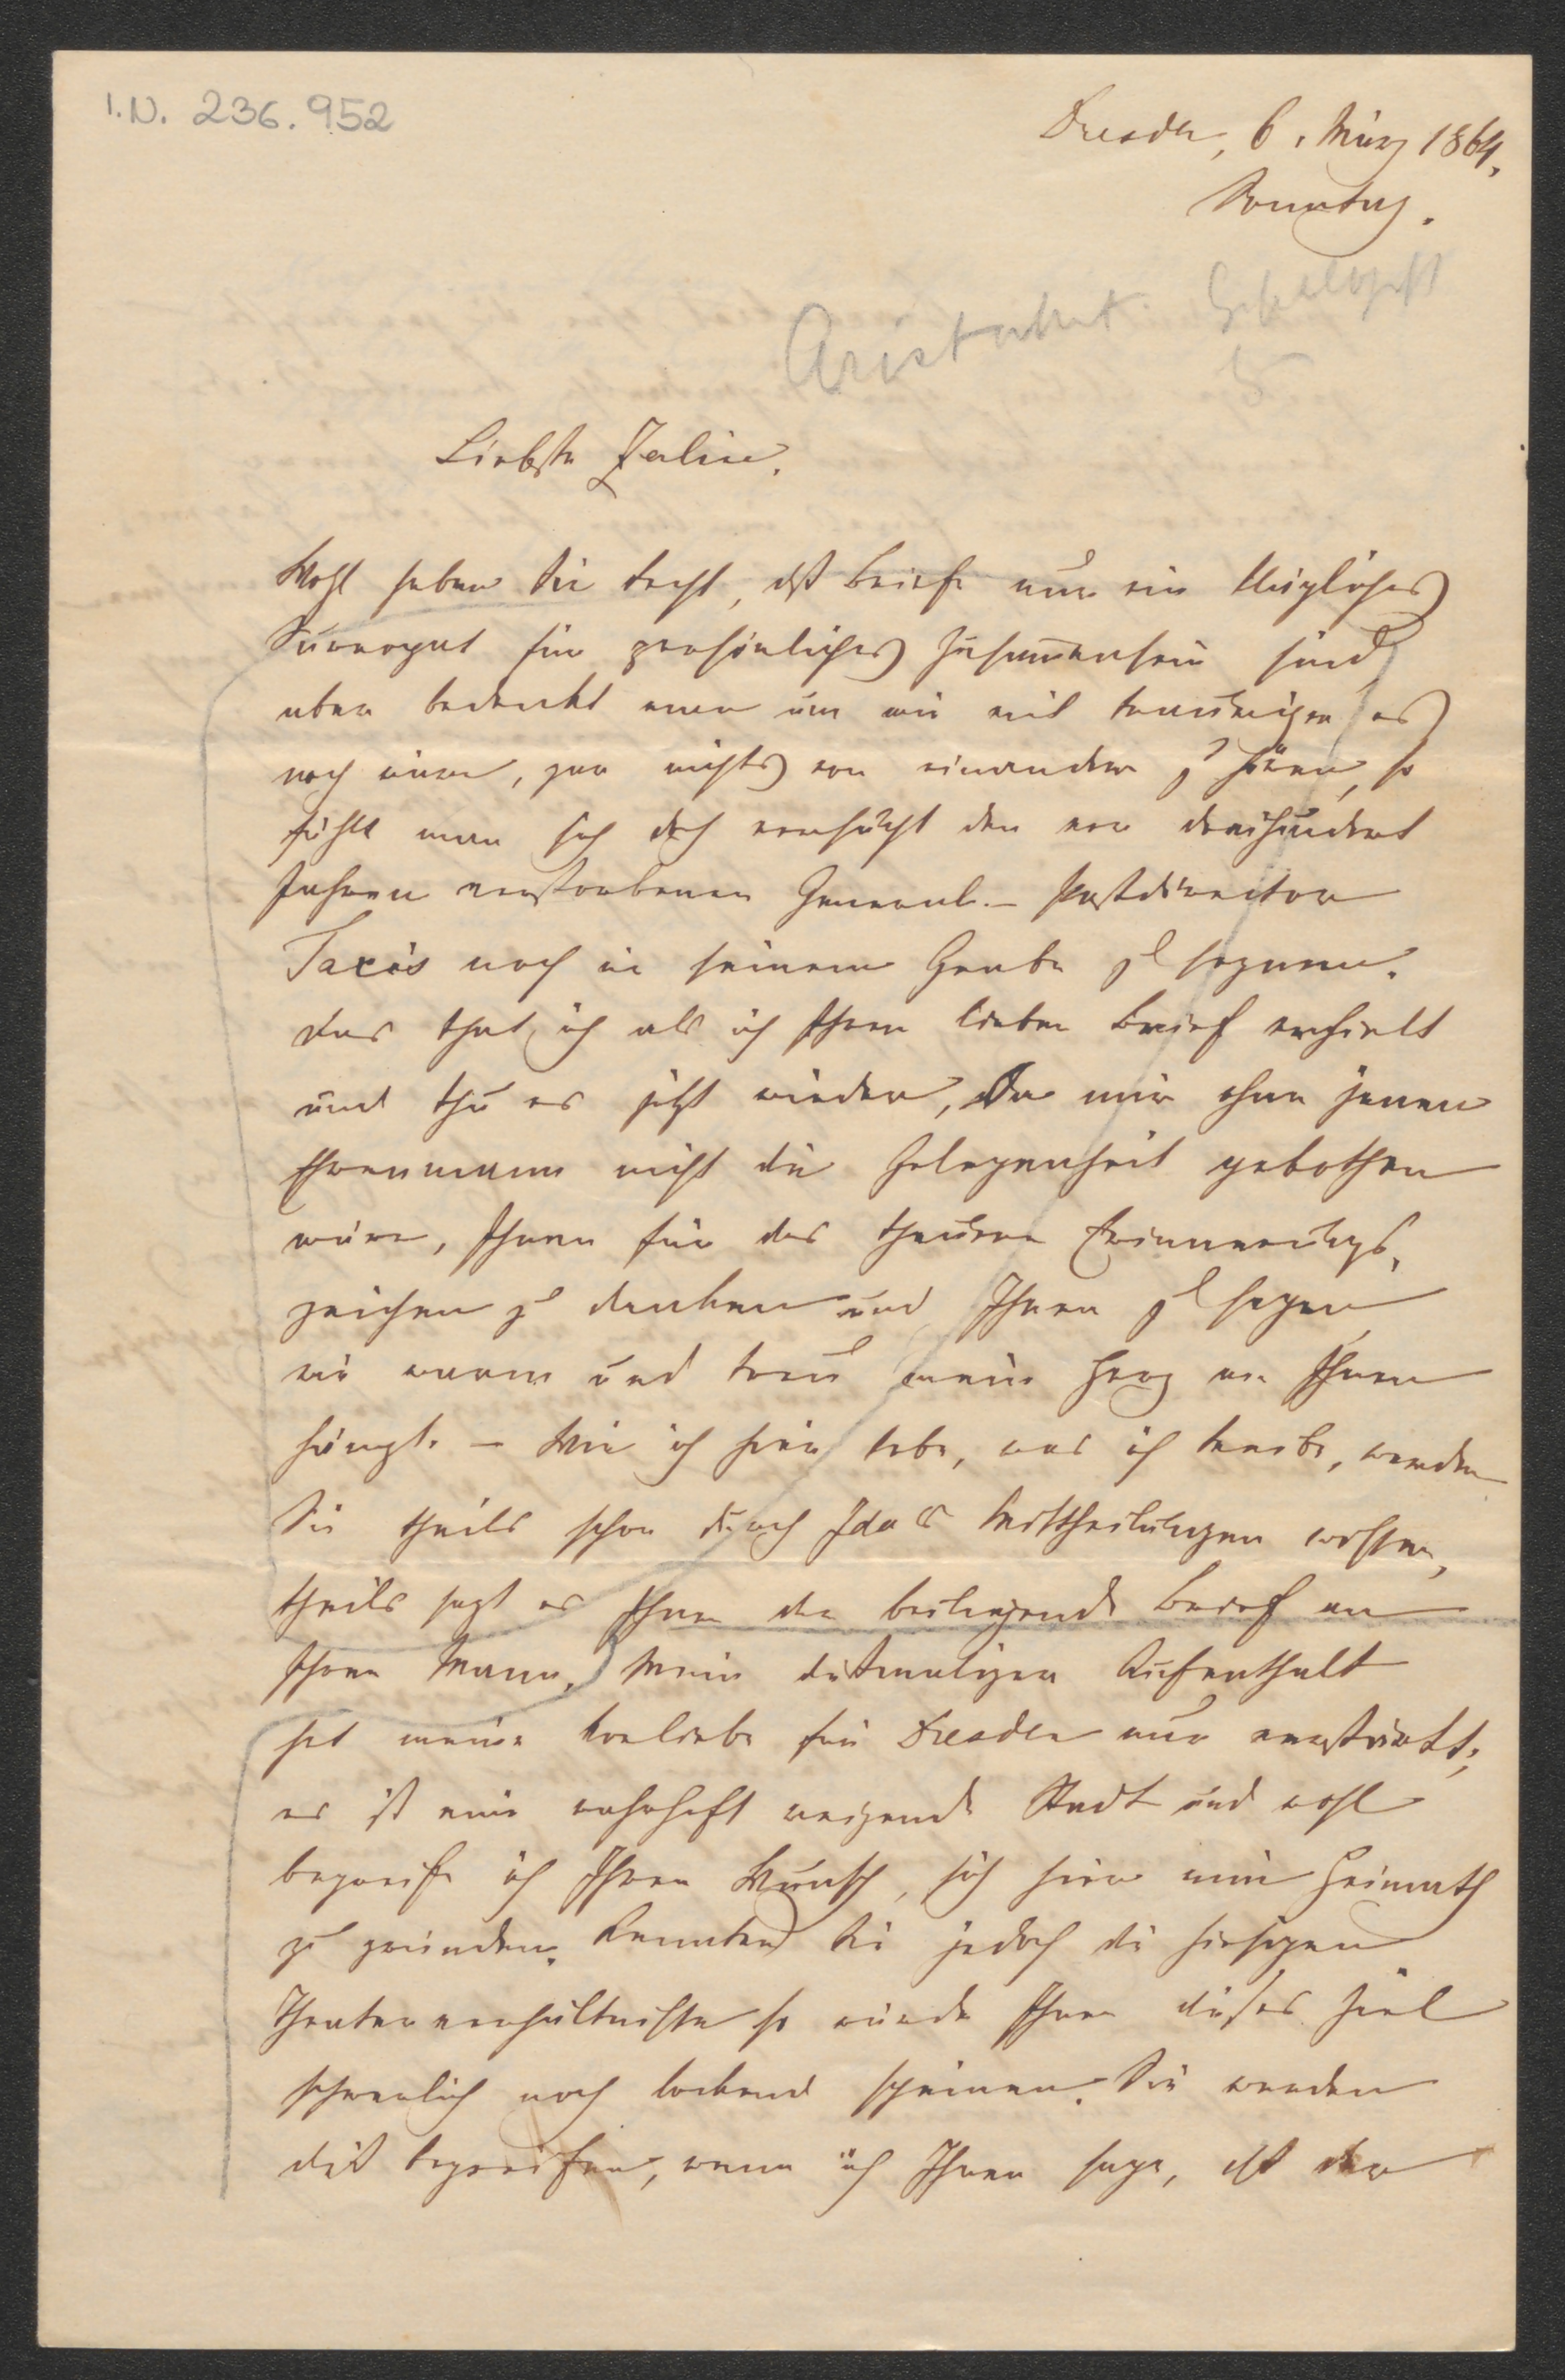 I.N. 236.952
Dresden, 6. März 1864.
Sonntag.
Liebste Zaline.
Wohl haben Sie Recht, dß Briefe nur ein klägliches
Surrogat für persönliches Zusammensein sind,
aber bedenkt man um wie viel trauriger es
noch wäre, gar nichts von einander z hören, so
fühlt man sich doch versucht den vor dreihundert
Jahren verstorbenen General-Postdirector
Taxis noch in seinem Grabe z segnen.
Das that ich als ich Ihren lieben Brief erhielt
und thu es jetzt wieder, da mir ohne jenen
Ehrenmann nicht die Gelegenheit gebothen
wäre, Ihnen für das theure Erinnerungs-
zeichen z danken und Ihnen z sagen
wie warm und treu mein Herz an Ihnen
hängt. – Wie ich hier lebe, was ich treibe, werden
Sie theils schon durch Ida's Mittheilungen wissen,
theils sagt es Ihnen der beiliegende Brief an
Ihren Mann. Mein dißmaliger Aufenthalt
hat meine Vorliebe für Dresden nur verstärkt;
es ist eine wahrhaft reizende Stadt und wohl
begreife ich Ihren Wunsch, sich hier eine Heimath
zu gründen. Kennten Sie jedoch die hiesigen
Theaterverhältnisse so würde Ihnen dieses Ziel
schwerlich noch lockend scheinen. Sie werden
diß begreifen, wenn ich Ihnen sage, dß der